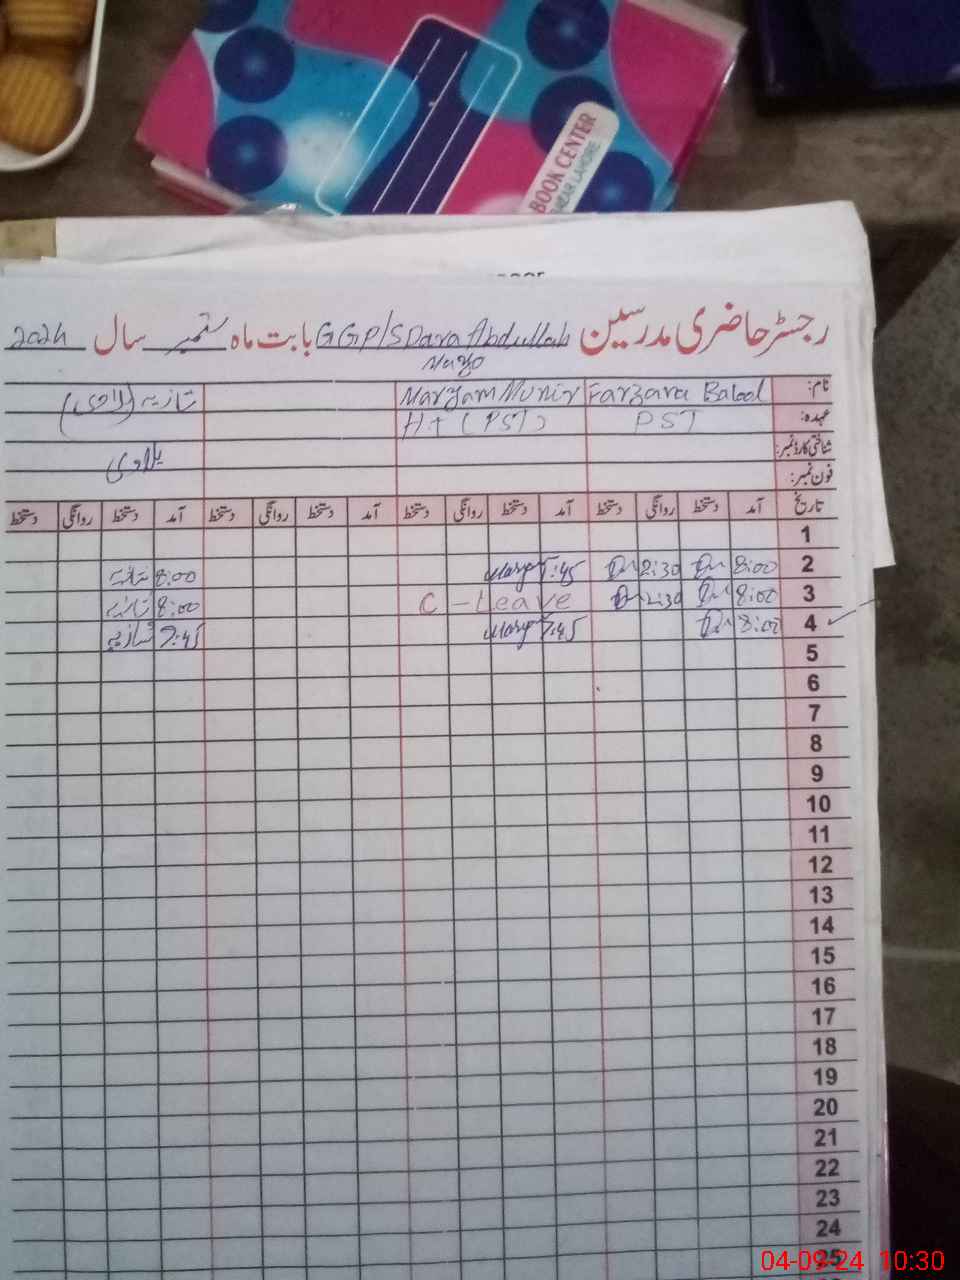 BOOK CENTER
LAHORE
رجسٹر حاضری مدرسین GGP/S Dara Abdullah بابت ماہ ستمبر سال 2024
Mayo
نام: Farzara Batool Maryam Munir
عہدہ: PST H+ (PST)
شناختی کارڈ نمبر:
فون نمبر:
تاریخ آمد دستخط روانگی دستخط آمد دستخط روانگی دستخط آمد دستخط روانگی دستخط آمد دستخط روانگی دستخط
1
2 8:00 2:30 7:45 8:00
3 8:00 2:30 C - Leave 8:00
4 8:00 7:45 7:45
5
6
7
8
9
10
11
12
13
14
15
16
17
18
19
20
21
22
23
24
25
04-09-24 10:30